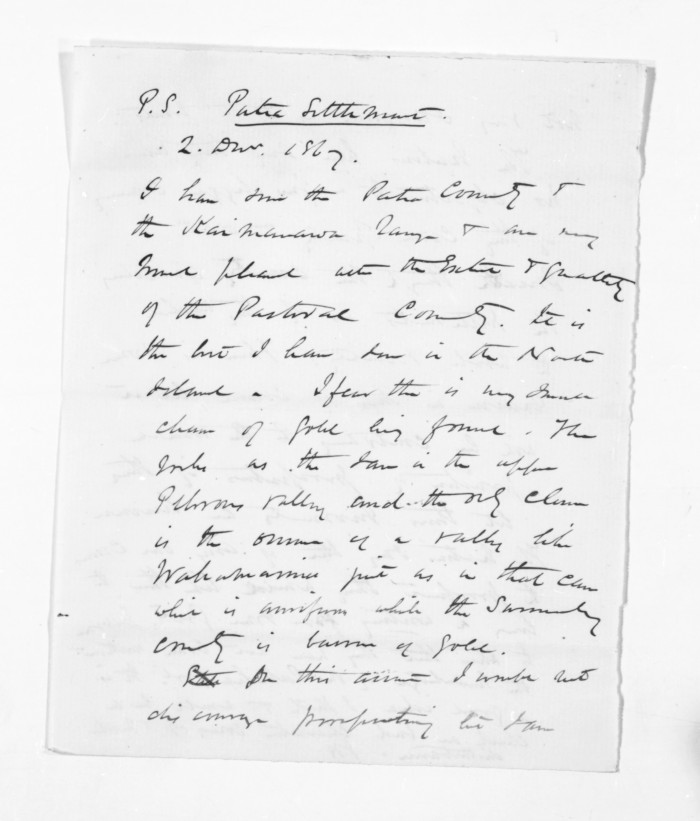 P.S. Patea Settlement.
2. Decr. 1867.
I have seen the Patea Country &
the Kaimanawa Range & am very
much pleased with the Extent & quality
of the Pastoral Country. It is
the best I have seen in the North
Island. I fear there is very small
chance of gold being found. The
rocks as the same in the upper
Pelorus valley and the only chance
is the occurrence of a valley like
Wakamarina just as in that case
which is auriferous while the surrounding
country is barren of gold.
On this account I would not
discourage prospecting but I am